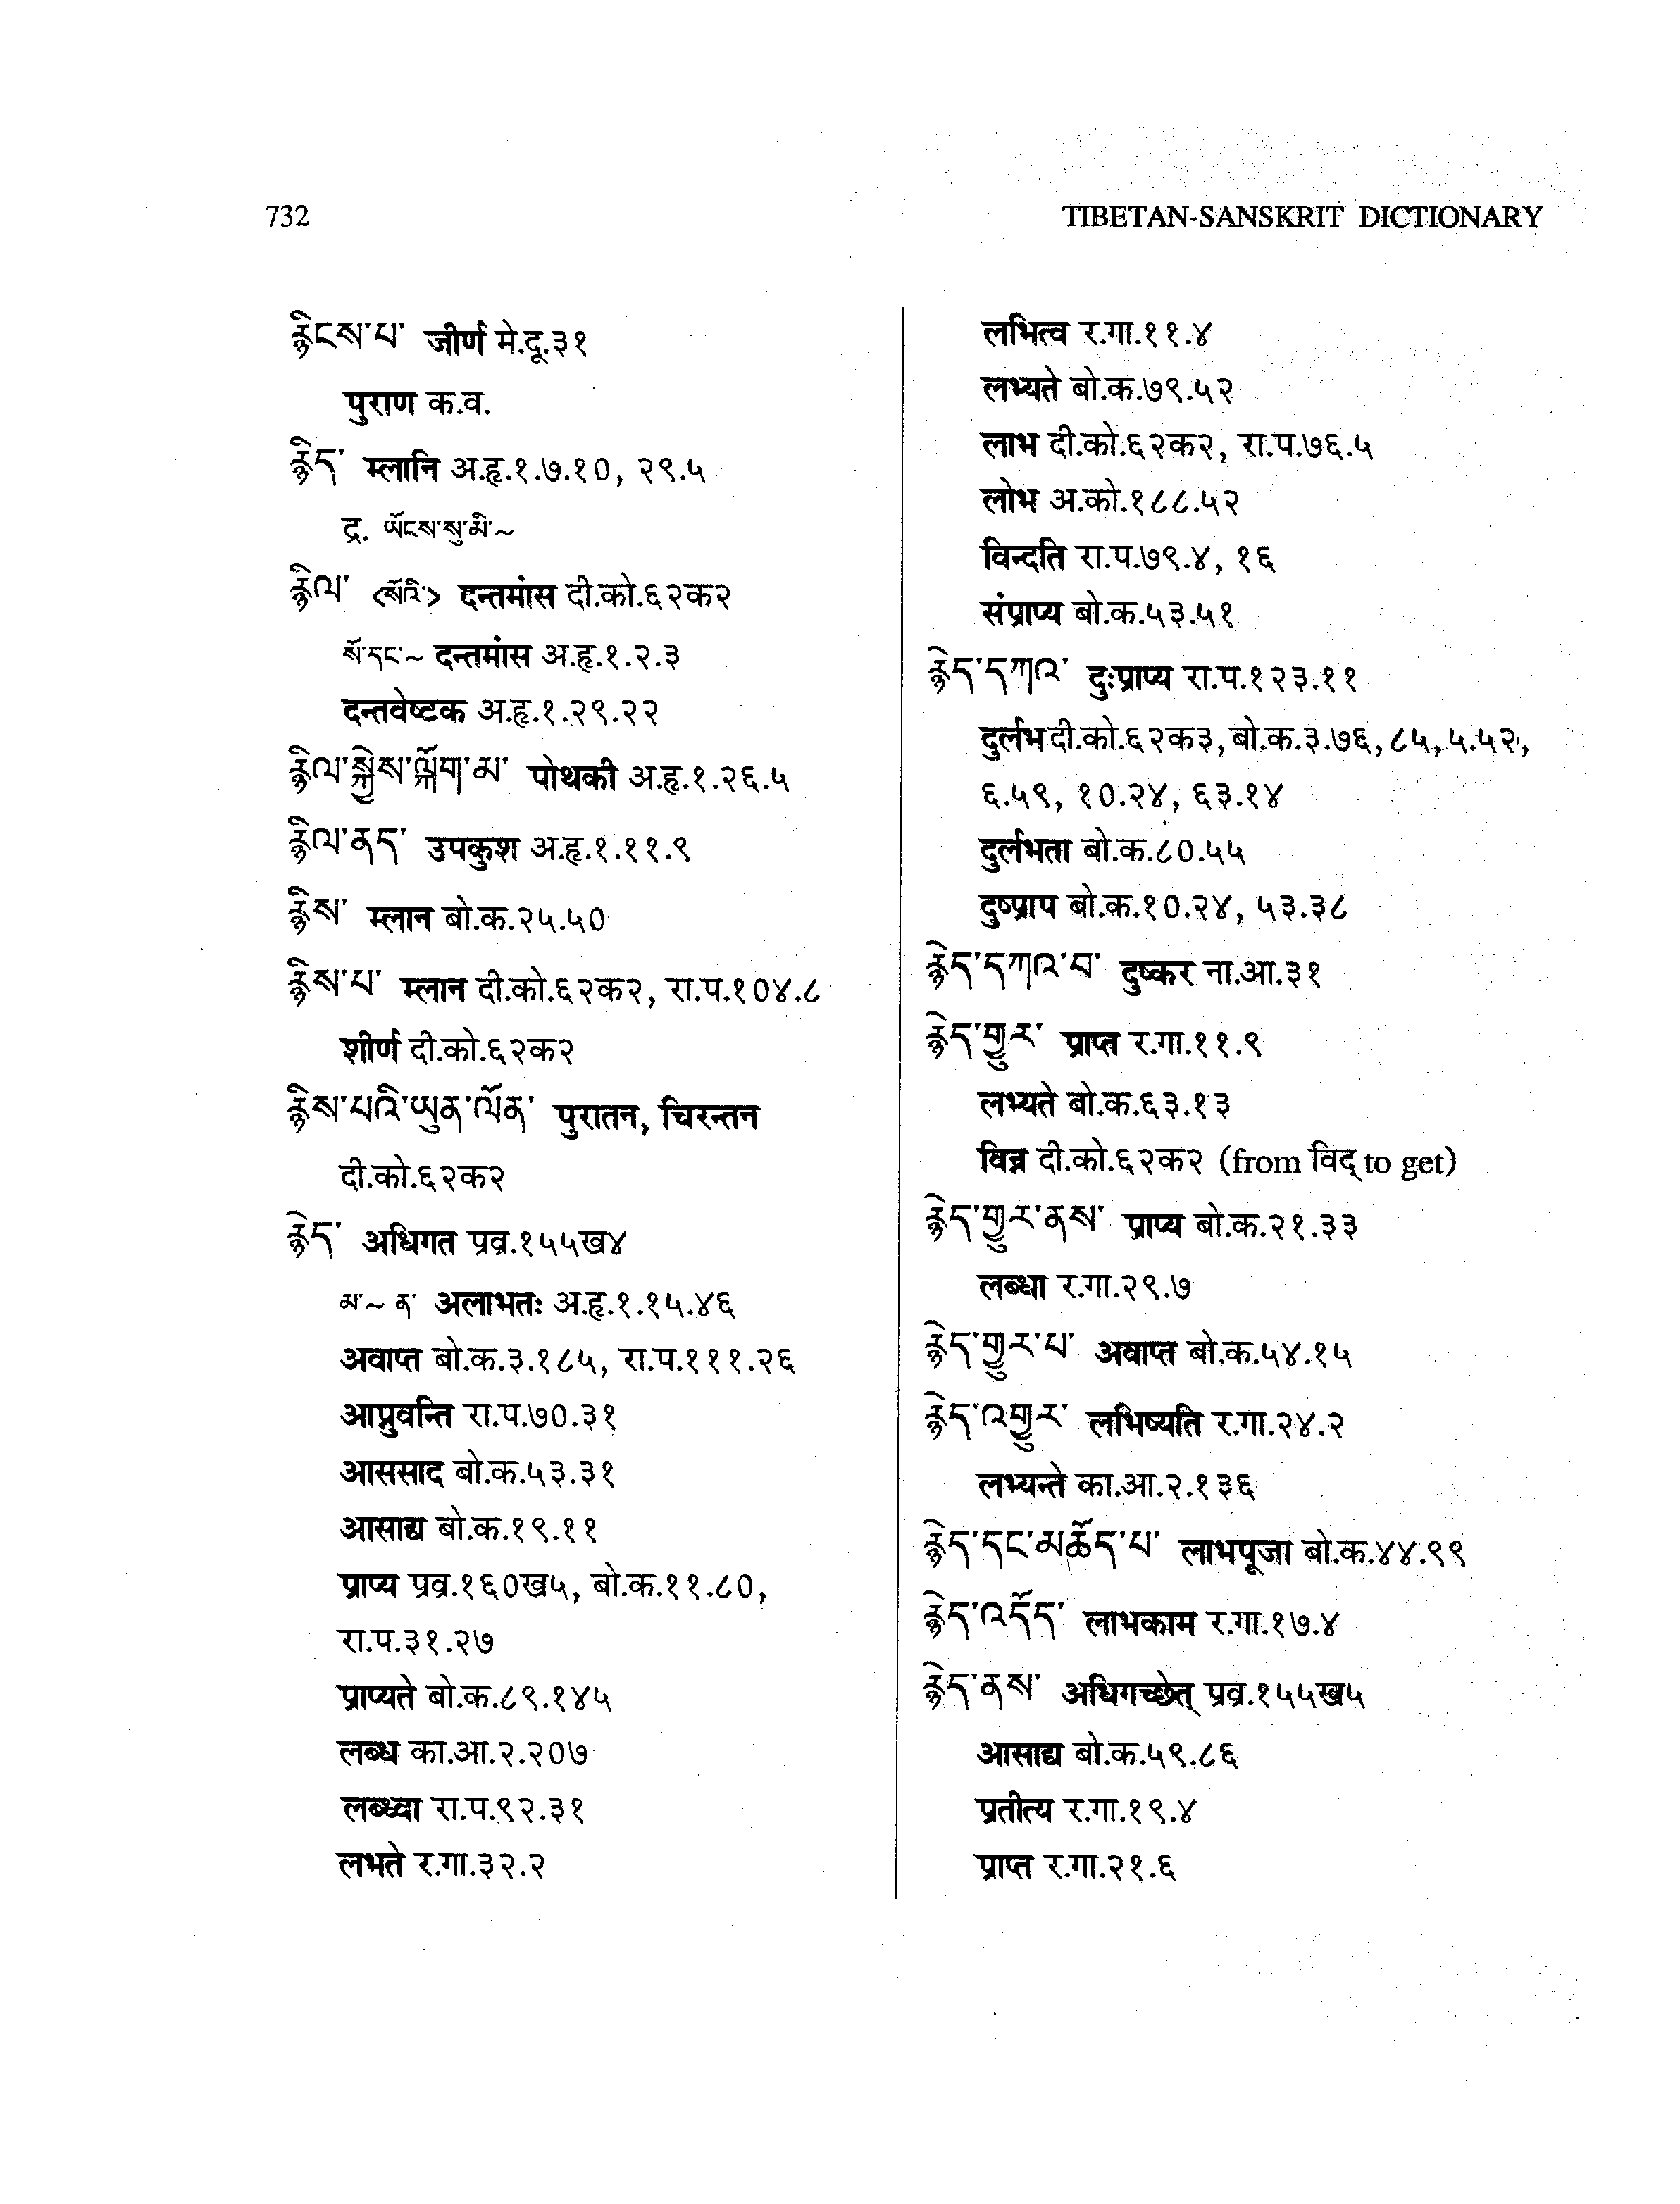 732
TIBETAN-SANSKRIT DICTIONARY
རྙིངས་པ་ जीर्ण मे.दू.३१
पुराण क.व.
རྙིད་ म्लानि अ.हृ.१.७.१०, २९.५
द्र. ཡོངས་སུ་མི་~
རྙིལ་ <སོའི་> दन्तमांस दी.को.६२क२
སོ་དང་~ दन्तमांस अ.हृ.१.२.३
दन्तवेष्टक अ.हृ.१.२९.२२
རྙིལ་སྐྱེས་ལྐོག་མ་ पोथकी अ.हृ.१.२६.५
རྙིལ་ནད་ उपकुश अ.हृ.१.११.९
རྙིས་ म्लान बो.क.२५.५०
རྙིས་པ་ म्लान दी.को.६२क२, रा.प.१०४.८
शीर्ण दी.को.६२क२
རྙིས་པའི་ཡུན་ལོན་ पुरातन, चिरन्तन
दी.को.६२क२
རྙེད་ अधिगत प्रव्र.१५५ख४
མ་~ ན་ अलाभतः अ.हृ.१.१५.४६
अवाप्त बो.क.३.१८५, रा.प.१११.२६
आप्नुवन्ति रा.प.७०.३१
आससाद बो.क.५३.३१
आसाद्य बो.क.१९.११
प्राप्य प्रव्र.१६०ख५, बो.क.११.८०,
रा.प.३१.२७
प्राप्यते बो.क.८९.१४५
लब्ध का.आ.२.२०७
लब्ध्वा रा.प.९२.३१
लभते र.गा.३२.२
लभित्व र.गा.११.४
लभ्यते बो.क.७९.५२
लाभ दी.को.६२क२, रा.प.७६.५
लोभ अ.को.१८८.५२
विन्दति रा.प.७९.४, १६
संप्राप्य बो.क.५३.५१
རྙེད་དཀའ་ दुःप्राप्य रा.प.१२३.११
दुर्लभ दी.को.६२क३, बो.क.३.७६, ८५, ५.५२,
६.५९, १०.२४, ६३.१४
दुर्लभता बो.क.८०.५५
दुष्प्राप बो.क.१०.२४, ५३.३८
རྙེད་དཀའ་བ་ दुष्कर ना.आ.३१
རྙེད་གྱུར་ प्राप्त र.गा.११.९
लभ्यते बो.क.६३.१३
विन्न दी.को.६२क२ (from विद् to get)
རྙེད་གྱུར་ནས་ प्राप्य बो.क.२१.३३
लब्धा र.गा.२९.७
རྙེད་གྱུར་པ་ अवाप्त बो.क.५४.१५
རྙེད་འགྱུར་ लभिष्यति र.गा.२४.२
लभ्यन्ते का.आ.२.१३६
རྙེད་དང་མཆོད་པ་ लाभपूजा बो.क.४४.९९
རྙེད་འདོད་ लाभकाम र.गा.१७.४
རྙེད་ནས་ अधिगच्छेत् प्रव्र.१५५ख५
आसाद्य बो.क.५९.८६
प्रतीत्य र.गा.१९.४
प्राप्त र.गा.२१.६